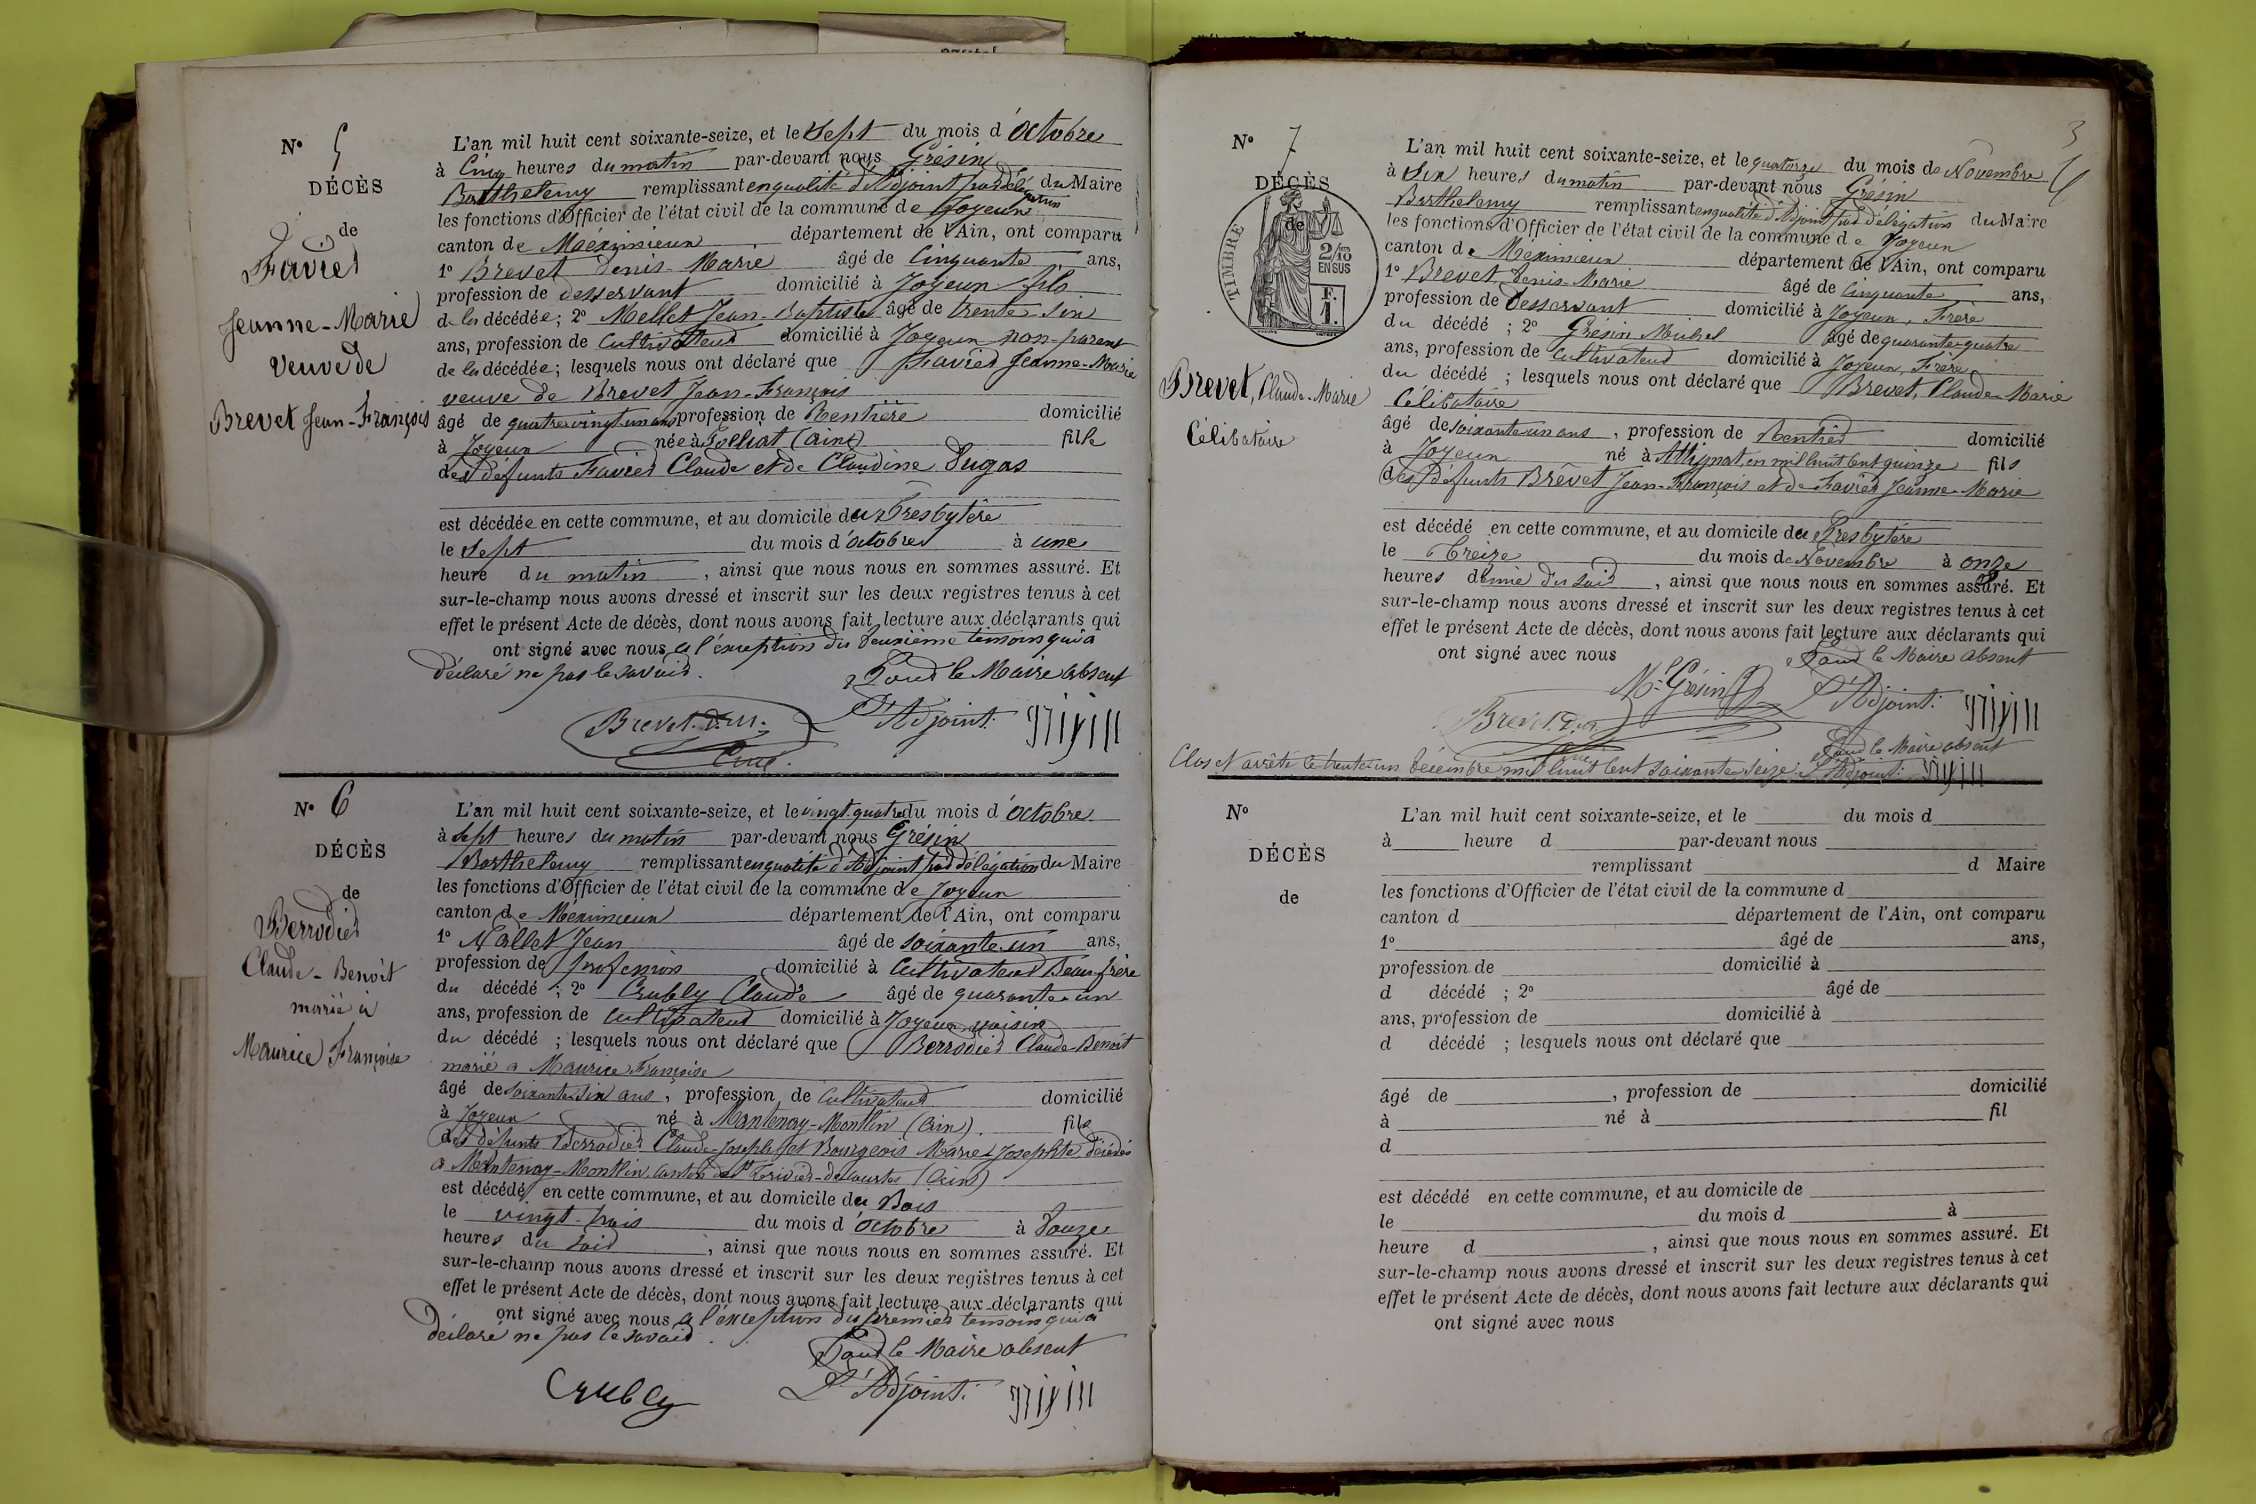 N° 5
DÉCÈS
de
Favier
Jeanne-Marie
Veuve de
Brevet Jean-François
L'an mil huit cent soixante-seize, et le Sept du mois d'octobre
à Cinq heures du matin par-devant nous Grésin
Barthelemy remplissant en qualité d'Adjoint par délégation du Maire
les fonctions d'Officier de l'état civil de la commune de Joyeux
canton de Méximieux département de l'Ain, ont comparu
1° Brevet Denis-Marie âgé de Cinquante ans,
profession de desservant domicilié à Joyeux fils
de la décédée; 2° Mellet Jean-Baptiste âgé de trente-six
ans, profession de Cultivateur domicilié à Joyeux non-parent
de la décédée; lesquels nous ont déclaré que Favier Jeanne-Marie
veuve de Brevet Jean-François
âgé de quatre vingt un ans profession de Rentière domicilié
à Joyeux née à (ain) fille
des défunts Favier Claude et de Claudine Dugas
est décédée en cette commune, et au domicile du Presbytère
le Sept du mois d'octobre à une
heure du matin, ainsi que nous nous en sommes assuré. Et
sur-le-champ nous avons dressé et inscrit sur les deux registres tenus à cet
effet le présent Acte de décès, dont nous avons fait lecture aux déclarants qui
ont signé avec nous à l'exception du deuxième témoin qui a
déclaré ne pas le savoir.
Pour le Maire absent
L'Adjoint:
Brevet. D. M.
Curé.
N° 6
DÉCÈS
de
Berrodier
Claude-Benoit
marié à
Maurice Françoise
L'an mil huit cent soixante-seize, et le vingt-quatre du mois d'octobre
à Sept heures du matin par-devant nous Grésin
Barthelemy remplissant en qualité d'Adjoint par délégation du Maire
les fonctions d'Officier de l'état civil de la commune de Joyeux
canton de Méximieux département de l'Ain, ont comparu
1° Mallet Jean âgé de soixante-un ans,
profession de profession domicilié à Cultivateur Beau-frère
du décédé; 2° Crubly Claude âgé de quarante-un
ans, profession de Cultivateur domicilié à Joyeux voisin
du décédé; lesquels nous ont déclaré que Berrodier Claude-Benoit
marié a Maurice Françoise
âgé de soixante-six ans, profession de Cultivateur domicilié
à Joyeux né à Mantenay-Montlin (Ain) fils
des défunts Berrodier Claude-Joseph et Bourgeois Marie-Josephte décédés
a Mantenay-Montlin canton de St Trivier-de-Courtes (Ain)
est décédé en cette commune, et au domicile du Bois
le vingt-trois du mois d'octobre à Douze
heures du soir, ainsi que nous nous en sommes assuré. Et
sur-le-champ nous avons dressé et inscrit sur les deux registres tenus à cet
effet le présent Acte de décès, dont nous avons fait lecture aux déclarants qui
ont signé avec nous à l'exception du premier témoin qui a
déclaré ne pas le savoir.
Pour le Maire absent
L'Adjoint:
Crubly
3
N° 7
DÉCÈS
de
TIMBRE
2/10
EN SUS
F.
1.
Brevet, Claude-Marie
Célibataire
L'an mil huit cent soixante-seize, et le quatorze du mois de Novembre
à Six heures du matin par-devant nous Grésin
Barthelemy remplissant en qualité d'Adjoint par délégation du Maire
les fonctions d'Officier de l'état civil de la commune de Joyeux
canton de Méximieux département de l'Ain, ont comparu
1° Brevet Denis-Marie âgé de Cinquante ans,
profession de Desservant domicilié à Joyeux, Frère
du décédé; 2° Grésin Michel âgé de quarante-quatre
ans, profession de Cultivateur domicilié à Joyeux, Frère
du décédé; lesquels nous ont déclaré que Brevet, Claude-Marie
Célibataire
âgé de soixante un ans, profession de Rentier domicilié
à Joyeux né à Attignat, en mil huit cent quinze fils
des Défunts Brevet Jean-François et de Favier Jeanne-Marie
est décédé en cette commune, et au domicile du Presbytère
le Treize du mois de Novembre à onze
heures demie du soir, ainsi que nous nous en sommes assuré. Et
sur-le-champ nous avons dressé et inscrit sur les deux registres tenus à cet
effet le présent Acte de décès, dont nous avons fait lecture aux déclarants qui
ont signé avec nous
Pour le Maire absent
L'Adjoint:
Mel Grésin
Brevet. D. M.
Clos et arrêté le trente un décembre mil huit cent soixante seize
Pour le Maire absent
L'Adjoint:
N°
DÉCÈS
de
L'an mil huit cent soixante-seize, et le du mois d
à heure d par-devant nous
remplissant d Maire
les fonctions d'Officier de l'état civil de la commune d
canton d département de l'Ain, ont comparu
1° âgé de ans,
profession de domicilié à
d décédé ; 2° âgé de
ans, profession de domicilié à
d décédé ; lesquels nous ont déclaré que
âgé de , profession de domicilié
à né à fil
d
est décédé en cette commune, et au domicile de
le du mois d à
heure d , ainsi que nous nous en sommes assuré. Et
sur-le-champ nous avons dressé et inscrit sur les deux registres tenus à cet
effet le présent Acte de décès, dont nous avons fait lecture aux déclarants qui
ont signé avec nous